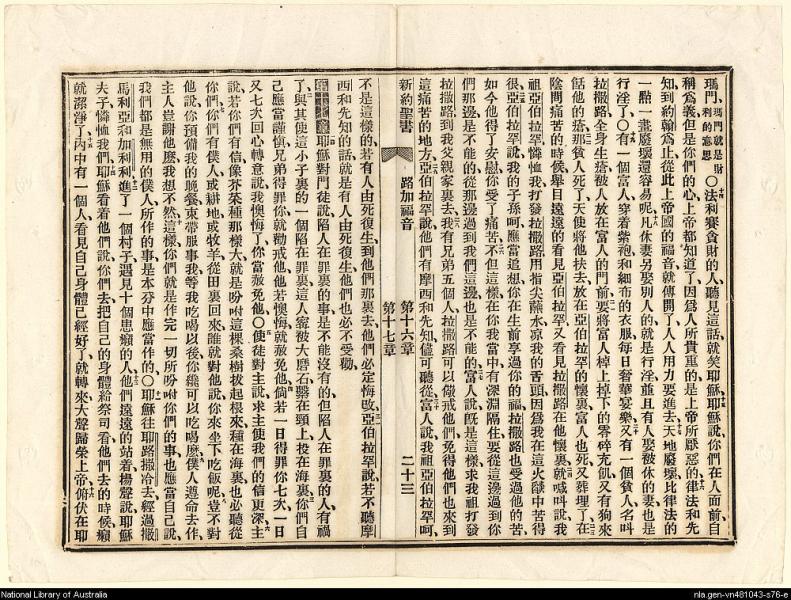 瑪門瑪門就是財利的意思○法利賽貪財的人、聽見這話、就笑耶穌耶穌說、你們在人面前自
稱爲義但是你們的心上帝都知道了因爲人所貴重的、是上帝所厭惡的律法和先
知、到約翰爲止從此上帝國的福音、就傳開了、人人用力要進去、天地廢壞比律法的
一點一畫廢壞還容易呢、凡休妻另娶別人的就是行淫並且有人娶被休的妻也是
行淫了○有一個富人、穿着紫袍和細布的衣服、每日奢華宴樂又有一個貧人名叫
拉撒路全身生瘡被人放在富人的門前要將富人棹上掉下的零碎充飢又有狗來
餂他的瘡那貧人死了天使將他扶去放在亞伯拉罕的懷裏富人也死又葬埋了在
陰間痛苦的時候舉目遠遠的看見亞伯拉罕又看見拉撒路在他懷裏就喊叫說我
祖亞伯拉罕憐恤我打發拉撒路用指尖蘸水凉我的舌頭因爲我在這火燄中苦得
很亞伯拉罕說我的子孫呵、應當追想你在生前享過你的福拉撒路也受過他的苦
如今他得了安慰你受了痛苦、不但這樣在你我當中有深淵隔住要從這邊過到你
們那邊是不能的從那邊過到我們這邊也是不能的富人說旣是這樣求我祖打發
拉撒路到我父親家裏去我有兄弟五個人拉撒路可以儆戒他們免得他們也來到
這痛苦的地方、亞伯拉罕說他們有摩西和先知儘可聽從富人說我祖亞伯拉罕呵、
新約聖書 路加福音 第十六章 第十七章 二十三
不是這樣的、若有人由死復生到他們那裏去他們必定悔改亞伯拉罕說若不聽摩
西和先知的話就是有人由死復生他們也必不受勸、
耶穌對門徒說陷人在罪裏的事是不能沒有的但陷人在罪裏的人有禍
了與其使這小子裏的一個陷在罪裏這人寗被大磨石繫在頸上投在海裏你們自
己應當謹愼兄弟得罪你就勸戒他他若懊悔就赦免他倘若一日得罪你七次一日
又七次回心轉意說我懊悔了你當赦免他○使徒對主說求主使我們的信更深主
說若你們有信像芥菜種那樣大就是吩咐這棵桑樹拔起根來種在海裏也必聽從
你們你們有僕人或耕地或牧羊從田裏回來誰就對他說你來坐下吃飯呢豈不對
他說你預備我的晚餐束帶服事我等我吃喝以後你纔可以吃喝麽僕人遵命去作
主人豈謝他麽我想不然這樣你們就是作完一切所吩咐你們的事也應當自己說
我們都是無用的僕人所作的事是本分中應當作的○耶穌往耶路撒冷去經過撒
馬利亞和加利利進了一個村子遇見十個患癩的人他們遠遠的站着揚聲說耶穌
夫子憐恤我們耶穌看着他們說你們去把自己的身體給祭司看他們去的時候癩
就潔淨了內中有一個人看見自己身體已經好了就轉來大聲歸榮上帝俯伏在耶
National Library of Australia
nla.gen-vn481043-s76-e